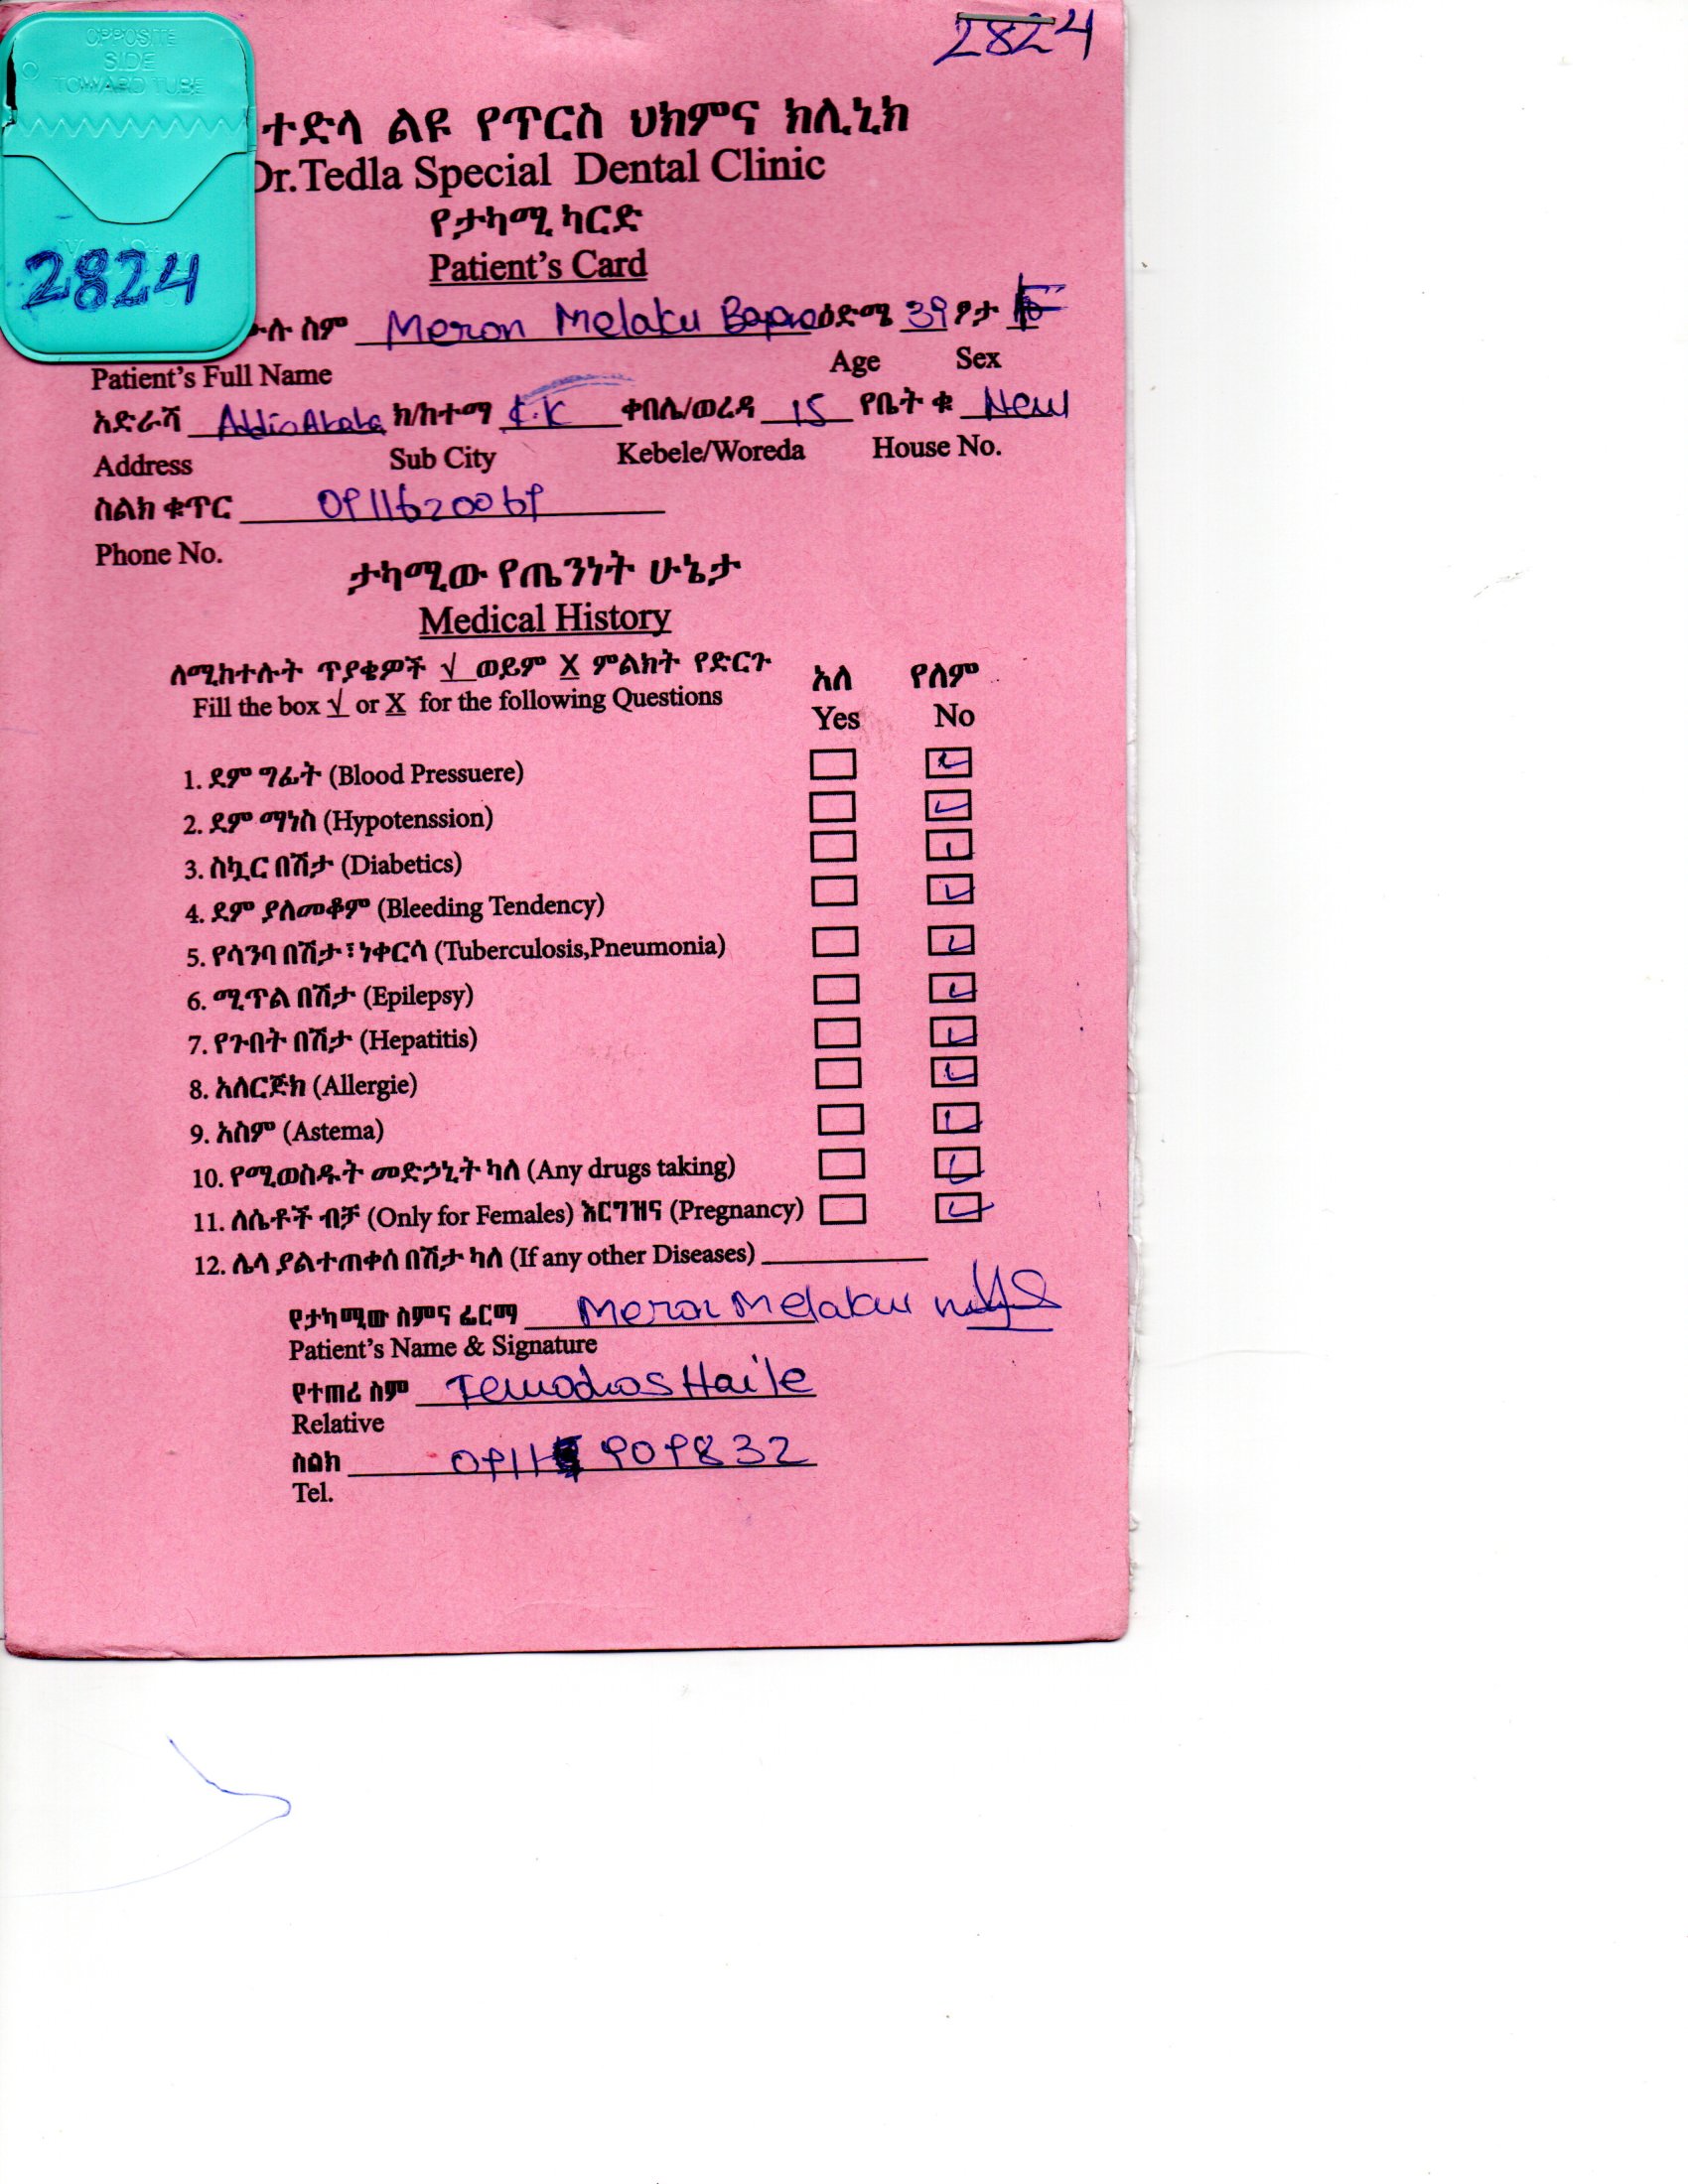 2824
OPPOSITE
SIDE
TOWARD TUBE
2824
ተድላ ልዩ የጥርስ ህክምና ክሊኒክ
Dr.Tedla Special Dental Clinic
የታካሚ ካርድ
Patient's Card
ሙሉ ስም Meron Melaku ዕድሜ 39 ፆታ F
Patient's Full Name Age Sex
አድራሻ Addis Ababa ክ/ከተማ k.k ቀበሌ/ወረዳ 15 የቤት ቁ New
Address Sub City Kebele/Woreda House No.
ስልክ ቁጥር 0911620069
Phone No.
ታካሚው የጤንነት ሁኔታ
Medical History
ለሚከተሉት ጥያቄዎች √ ወይም X ምልክት የድርጉ አለ የለም
Fill the box √ or X for the following Questions Yes No
1. ደም ግፊት (Blood Pressuere) ✓
2. ደም ማነስ (Hypotenssion) ✓
3. ስኳር በሽታ (Diabetics) ✓
4. ደም ያለመቆም (Bleeding Tendency) ✓
5. የሳንባ በሽታ፣ነቀርሳ (Tuberculosis,Pneumonia) ✓
6. ሚጥል በሽታ (Epilepsy) ✓
7. የጉበት በሽታ (Hepatitis) ✓
8. አለርጅክ (Allergie) ✓
9. አስም (Astema) ✓
10. የሚወስዱት መድኃኒት ካለ (Any drugs taking) ✓
11. ለሴቶች ብቻ (Only for Females) እርግዝና (Pregnancy) ✓
12. ሌላ ያልተጠቀሰ በሽታ ካለ (If any other Diseases)
የታካሚው ስምና ፊርማ Meron Melaku
Patient's Name & Signature
የተጠሪ ስም Tewodros Haile
Relative
ስልክ 0911 909832
Tel.